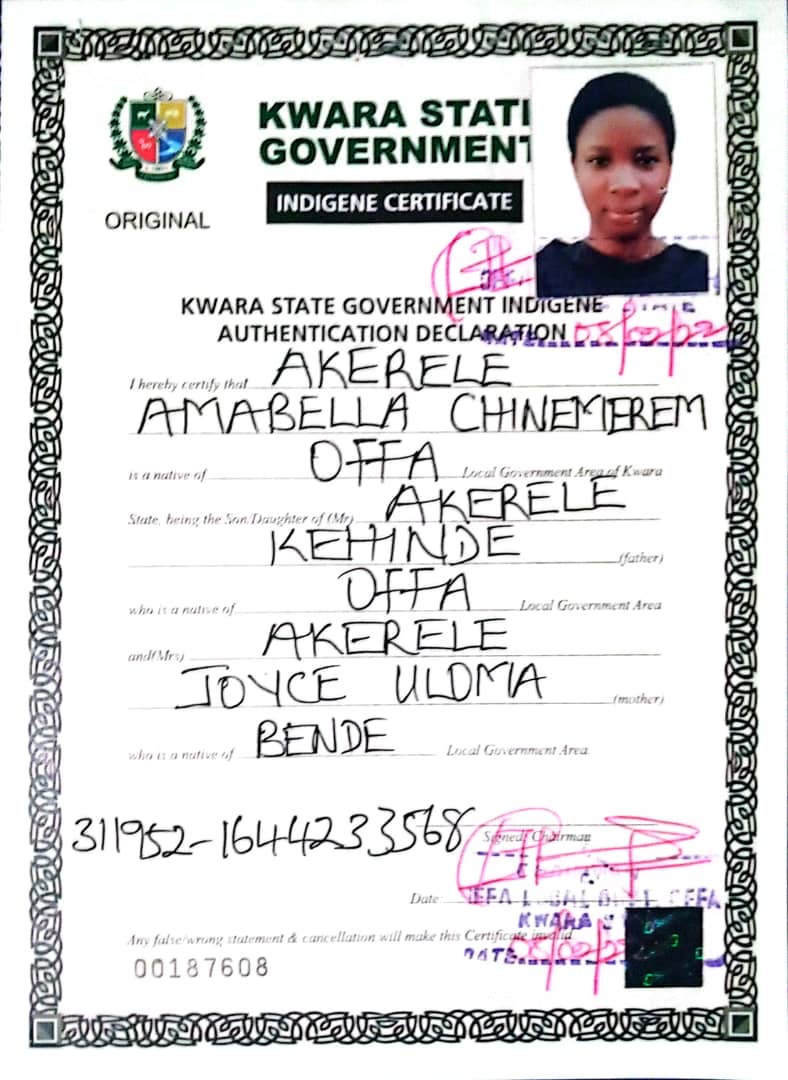 KWARA STATE
GOVERNMENT
INDIGENE CERTIFICATE
ORIGINAL
KWARA STATE GOVERNMENT INDIGENE
AUTHENTICATION DECLARATION
DATE 08/02/22
I hereby certify that AKERELE
AMABELLA CHINEMEREM
is a native of OFFA Local Government Area of Kwara
State, being the Son/Daughter of (Mr) AKERELE
KEHINDE (father)
who is a native of OFFA Local Government Area
and(Mrs) AKERELE
JOYCE ULOMA (mother)
who is a native of BENDE Local Government Area
311952-1644233568
Signed: Chairman
Date
OFFA LOCAL OFFA
KWARA
Any false/wrong statement & cancellation will make this Certificate invalid
DATE 08/02/22
00187608